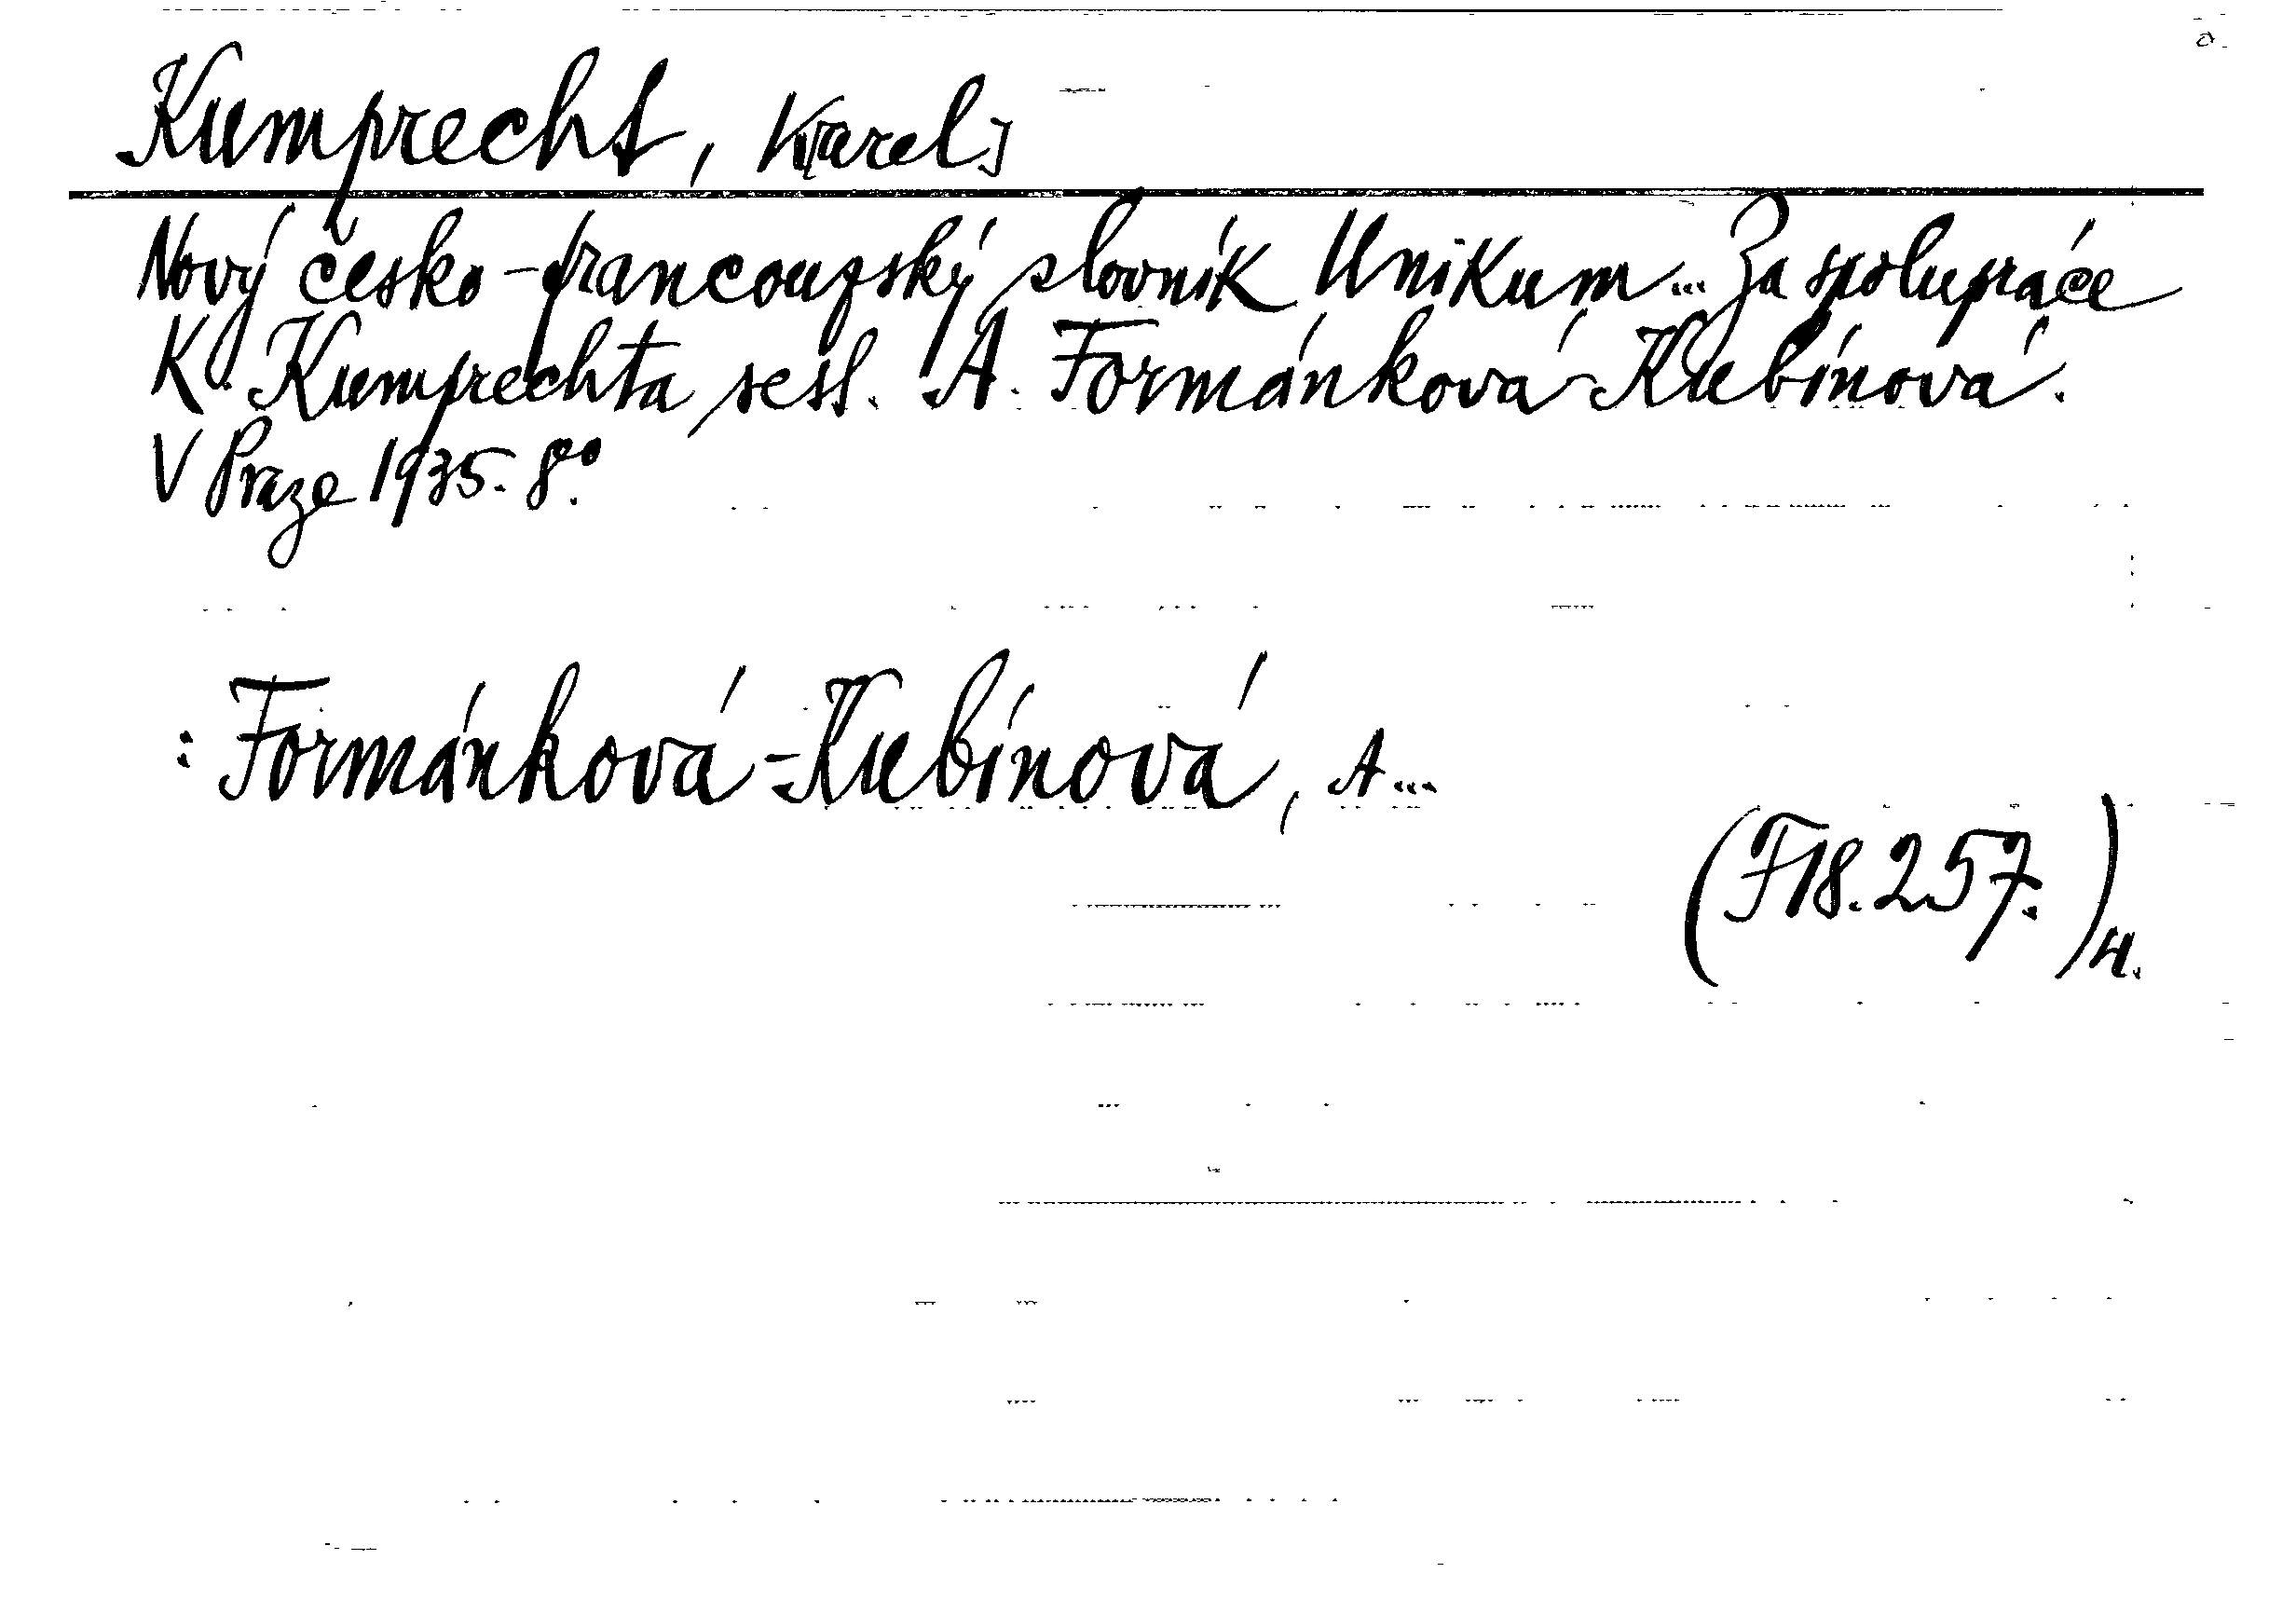 Kumprecht, K[arel]
Nový česko-francouzský slovník Unikum... Za spolupráce
K. Kumprechta sest. A. Formánková-Kubínová.
V Praze 1935. 8°.
: Formánková-Kubínová, A...
(F18.257.)